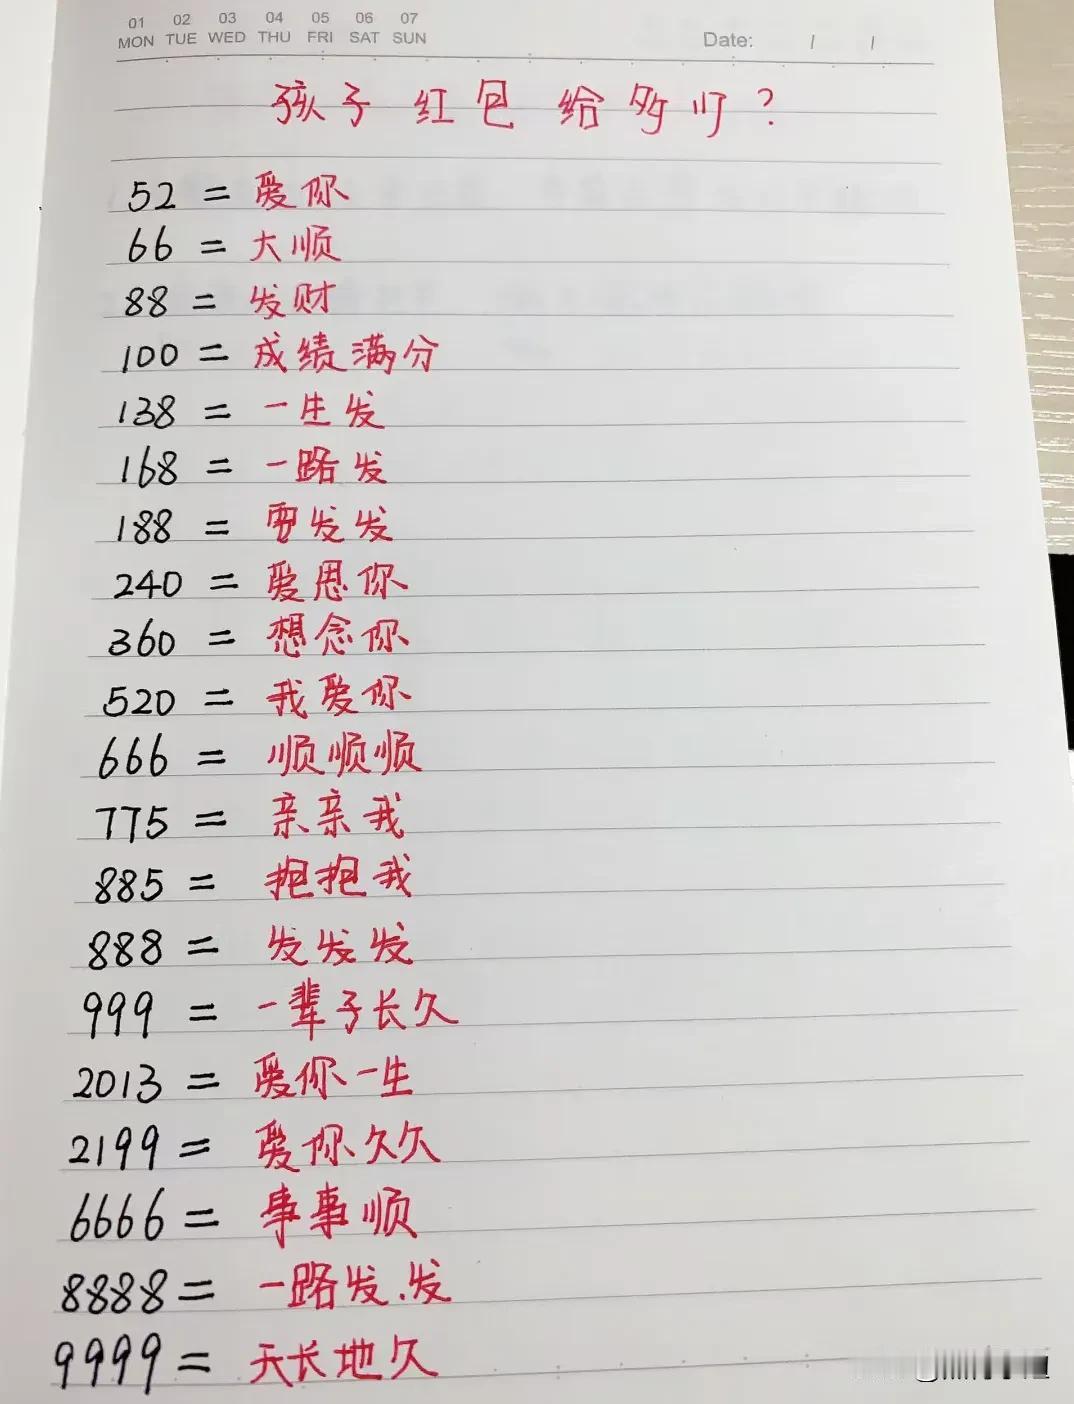 01 02 03 04 05 06 07
MON TUE WED THU FRI SAT SUN
Date: / /
孩子红包给多少?
52 = 爱你
66 = 大顺
88 = 发财
100 = 成绩满分
138 = 一生发
168 = 一路发
188 = 要发发
240 = 爱思你
360 = 想念你
520 = 我爱你
666 = 顺顺顺
775 = 亲亲我
885 = 抱抱我
888 = 发发发
999 = 一辈子长久
2013 = 爱你一生
2199 = 爱你久久
6666 = 事事顺
8888 = 一路发.发
9999 = 天长地久